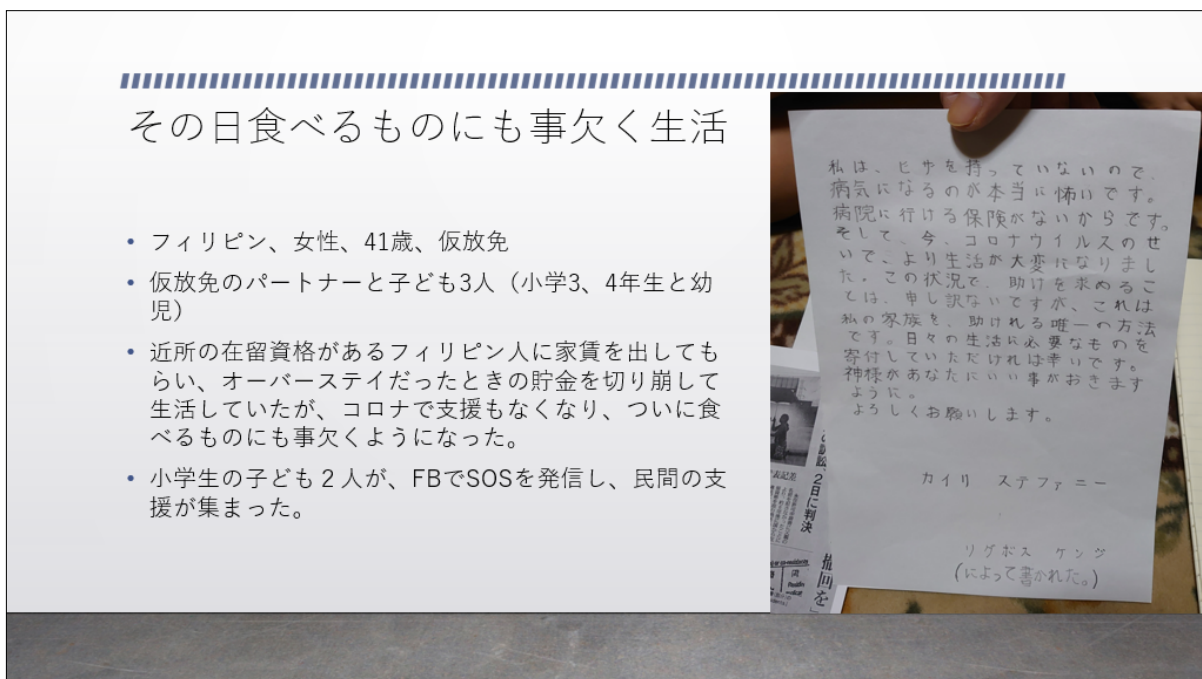 その日食べるものにも事欠く生活
• フィリピン、女性、41歳、仮放免
• 仮放免のパートナーと子ども3人（小学3、4年生と幼
児）
• 近所の在留資格があるフィリピン人に家賃を出しても
らい、オーバーステイだったときの貯金を切り崩して
生活していたが、コロナで支援もなくなり、ついに食
べるものにも事欠くようになった。
• 小学生の子ども２人が、FBでSOSを発信し、民間の支
援が集まった。
私は、ビザを持っていないので、
病気になるのが本当に怖いです。
病院に行ける保険がないからです。
そして、今、コロナウイルスのせ
いで、より生活が大変になりまし
た。この状況で、助けを求めるこ
とは、申し訳ないですが、これは
私の家族を、助けれる唯一の方法
です。日々の生活に必要なものを
寄付していただければ幸いです。
神様があなたにいい事がおきます
ように。
よろしくお願いします。
カイリ ステファニー
リグボス ケンジ
(によって書かれた。)
訴訟、2日に判決
撤回を